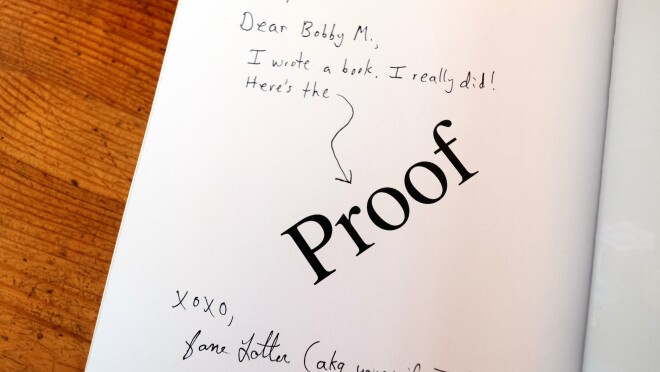 Dear Bobby M.,
I wrote a book. I really did!
Here's the
Proof
xoxo,
Jane Lotter (aka